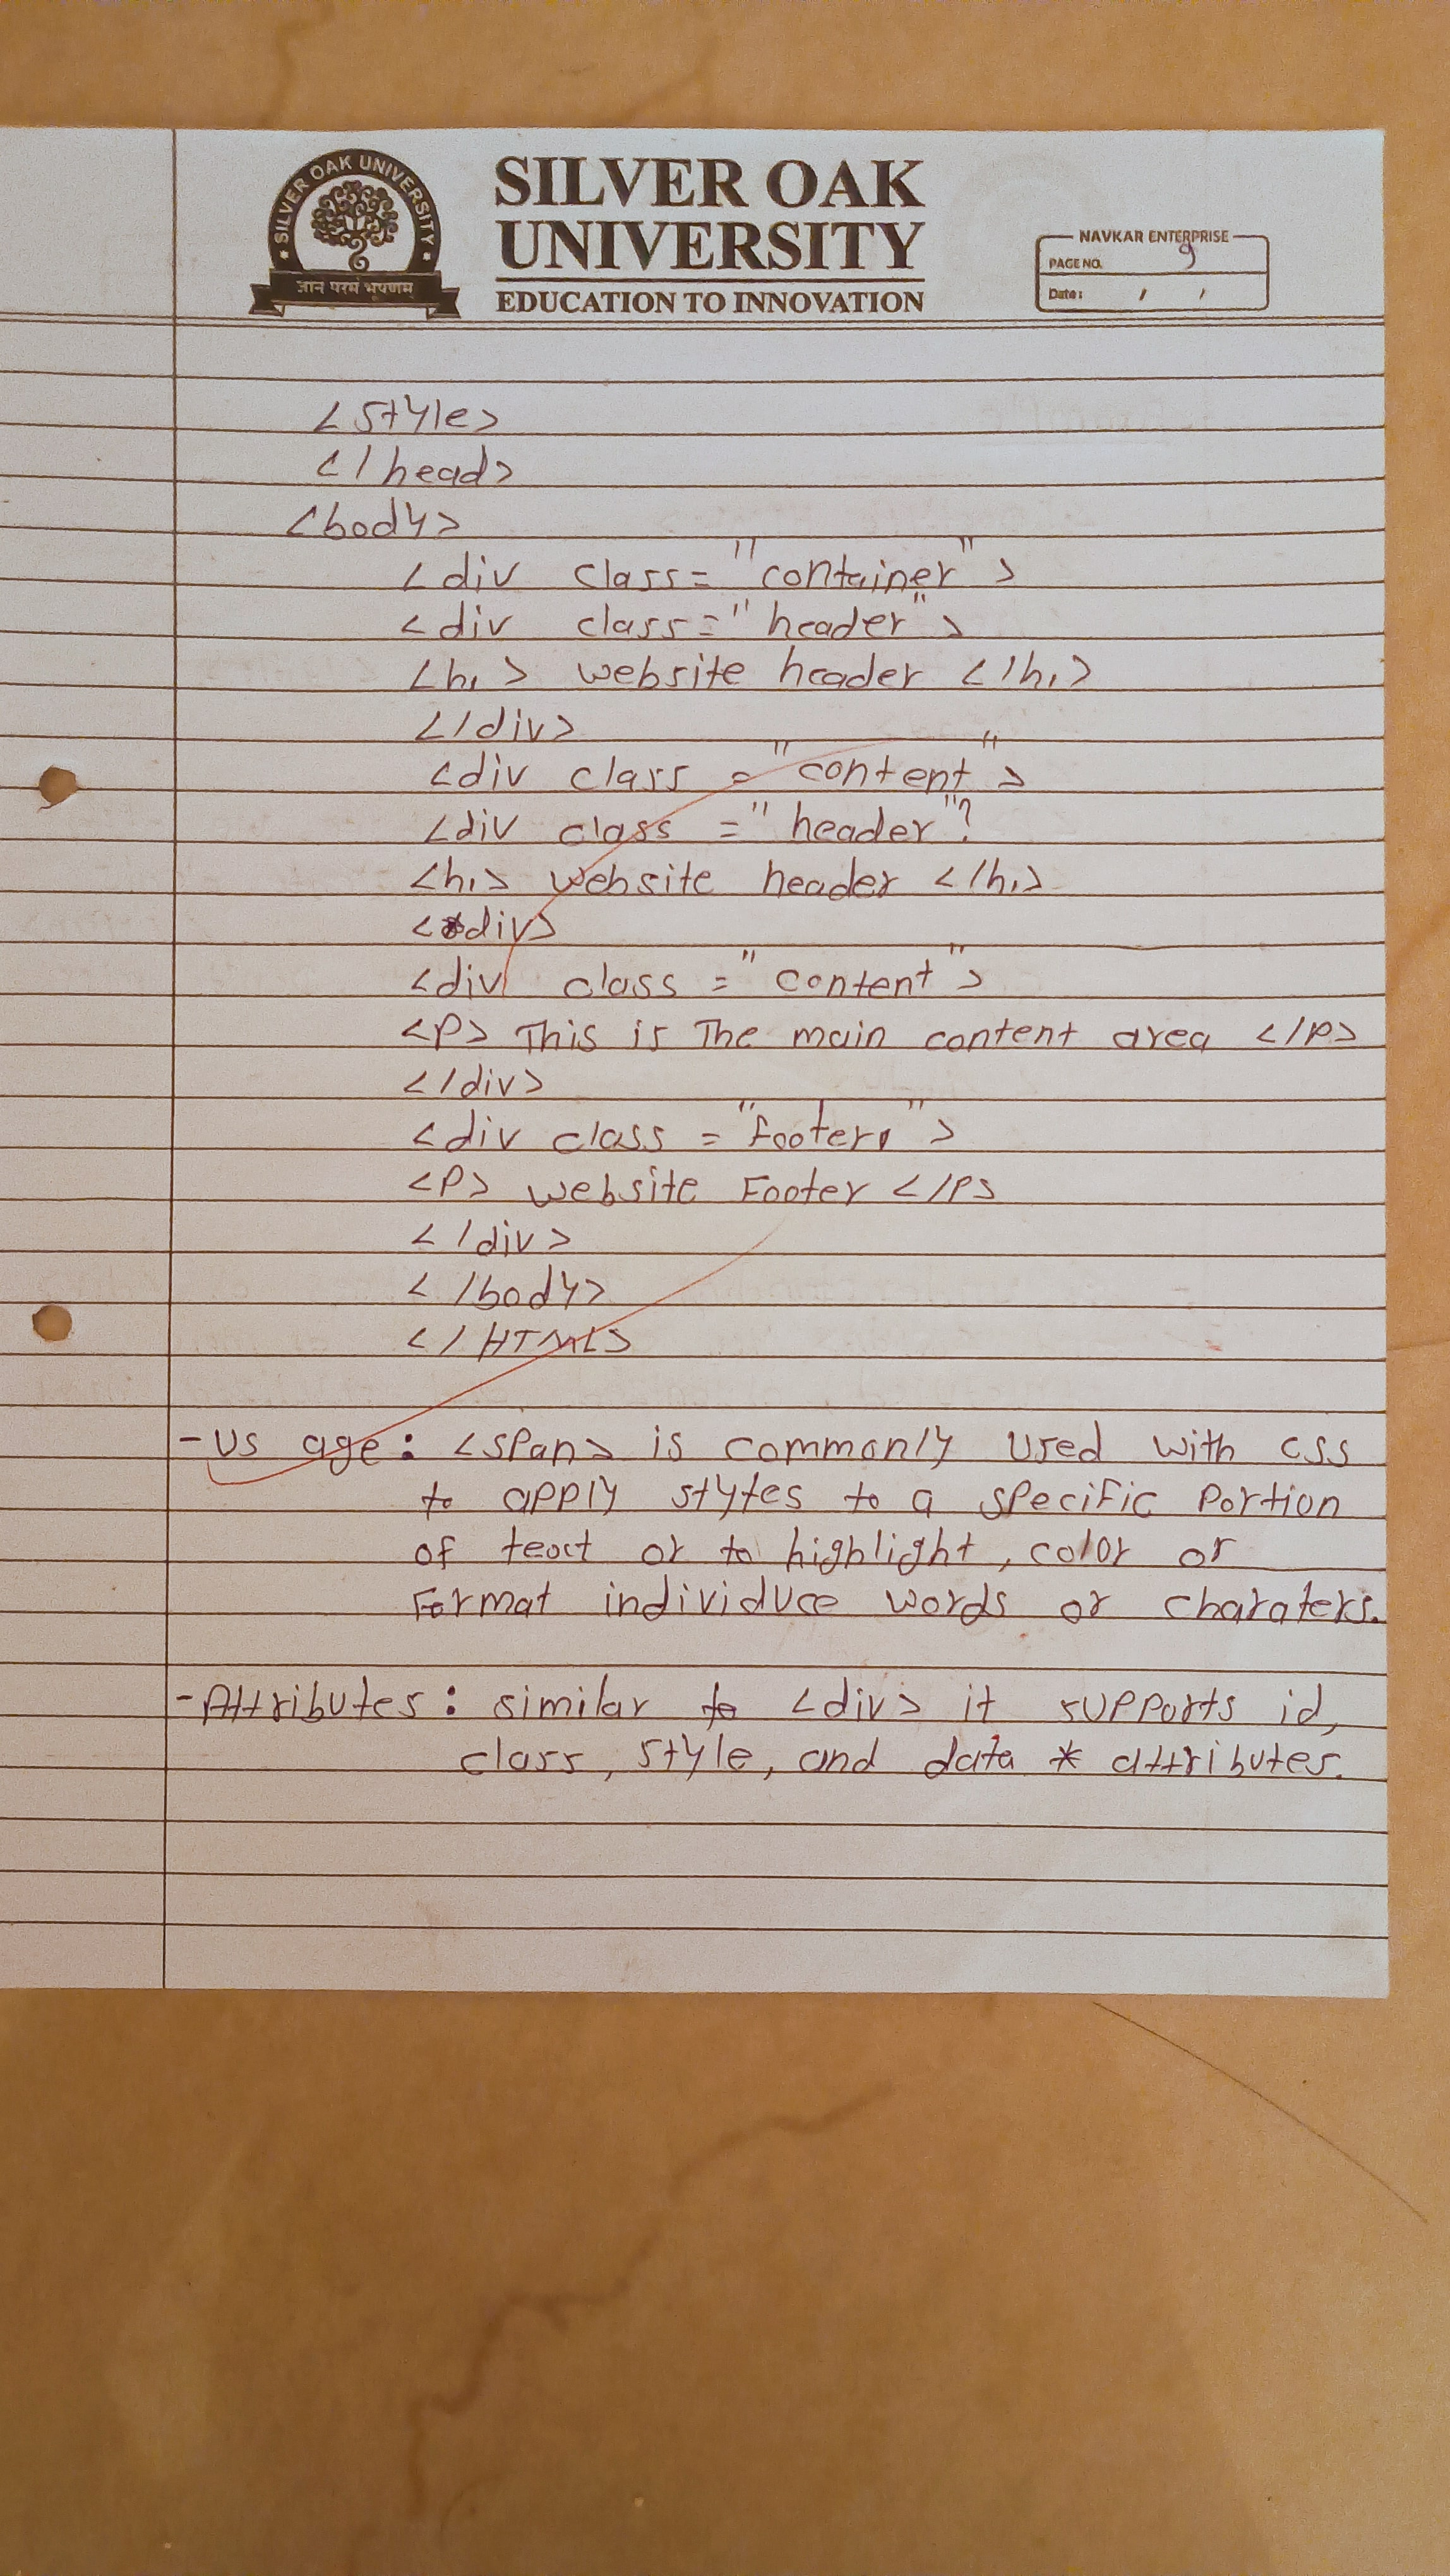 SILVER OAK UNIVERSITY
ज्ञानं परमं भूषणम्
SILVER OAK
UNIVERSITY
EDUCATION TO INNOVATION
NAVKAR ENTERPRISE
PAGE NO. 9
Date: / /
<style>
</head>
<body>
<div class="container">
<div class="header">
<h1> website header </h1>
</div>
<div class="content">
<div class="header"?
<h1> website header </h1>
<div>
<div class="content">
<P> This is The main content area </P>
</div>
<div class="footer">
<P> website Footer </P>
</div>
</body>
</HTML>
-US age: <span> is commonly used with css
to apply stytes to a specific Portion
of teoct or to highlight, color or
Format individuce words or charaters.
-Attributes: similar to <div> it supports id,
class, style, and data * attributes.